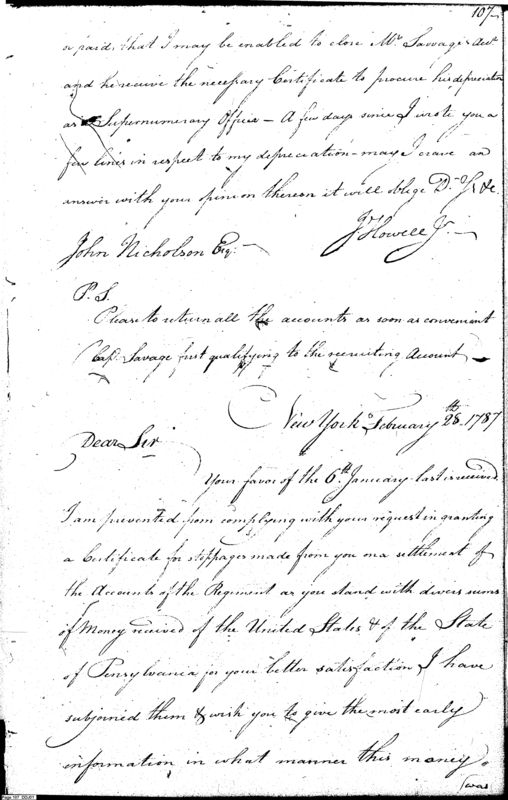 107
a paid, that I may be enabled to close Mr. Savage's Acct.
and he receive the necessary Certificate to procure his depreciation
as Supernumerary Officer — A few days since I wrote you a
few lines in respect to my depreciation — may I crave an
answer with your opinion thereon it will oblige Dr. Sr. &c
Js. Howell Jr. —
John Nicholson Esq. —
P.S.
Please to return all the accounts as soon as convenient
Capt. Savage first qualifying to the recruiting Account —
New York February 28th 1787
Dear Sir
Your favor of the 6th January last is received.
I am prevented from complying with your request in granting
a Certificate for stoppages made from you on a settlement of
the Accounts of the Regiment as you stand with divers sums
of Money received of the United States & of the State
of Pensylvania for your better satisfaction I have
subjoined them & wish you to give the most early
information in what manner this money
was